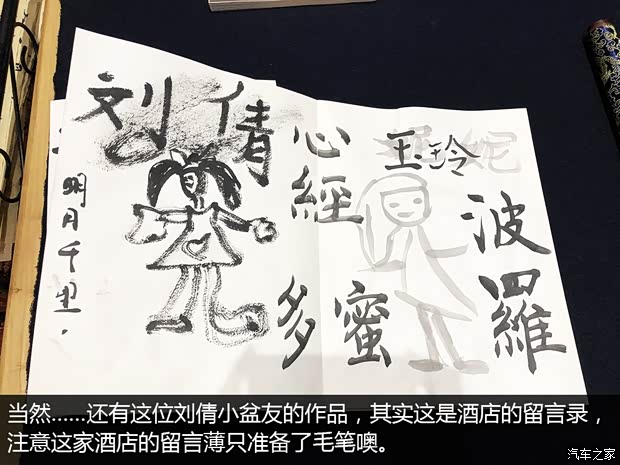 刘倩
明月千里.
心經
玉玲
妮
波羅
多蜜
当然……还有这位刘倩小盆友的作品，其实这是酒店的留言录，
注意这家酒店的留言薄只准备了毛笔噢。
汽车之家